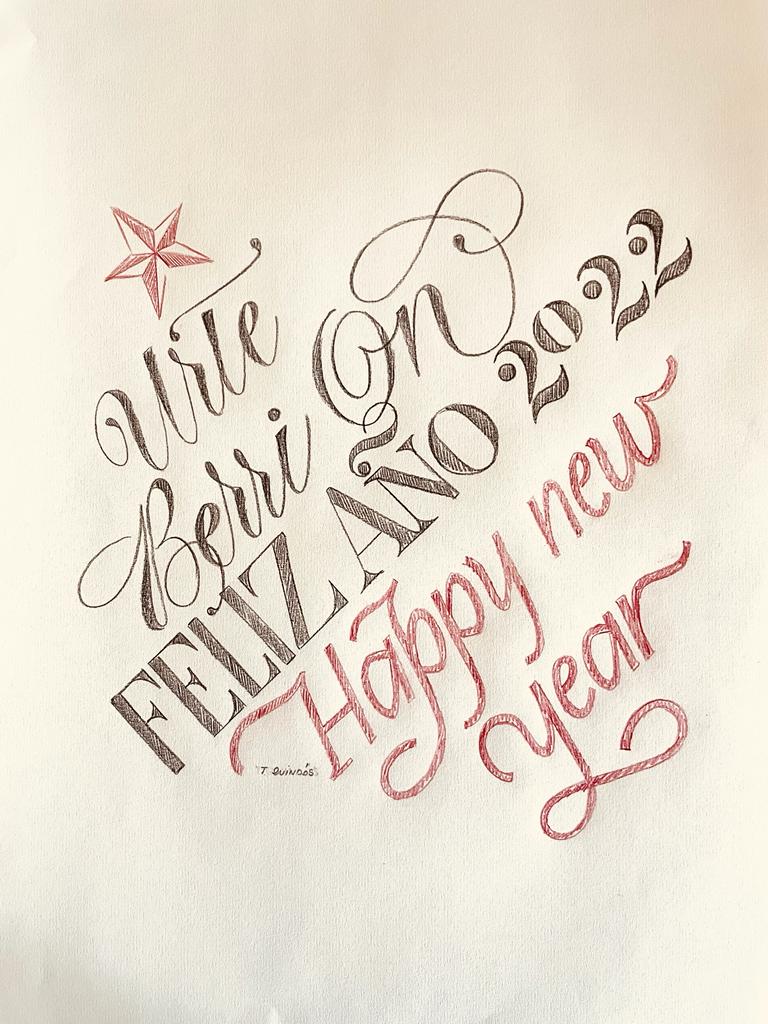 Urte
Berri On
FELIZ AÑO 2022
Happy new
year
T. QUINDÓS